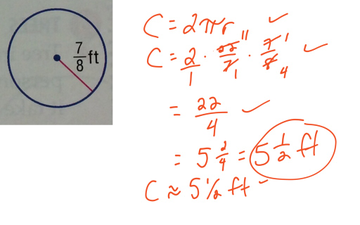 7/8 ft
C = 2πr ✓
C = 2/1 · 22/7 · 7/8 ✓
11 1
1 4
= 22/4 ✓
= 5 2/4 = 5 1/2 ft
C ≈ 5 1/2 ft